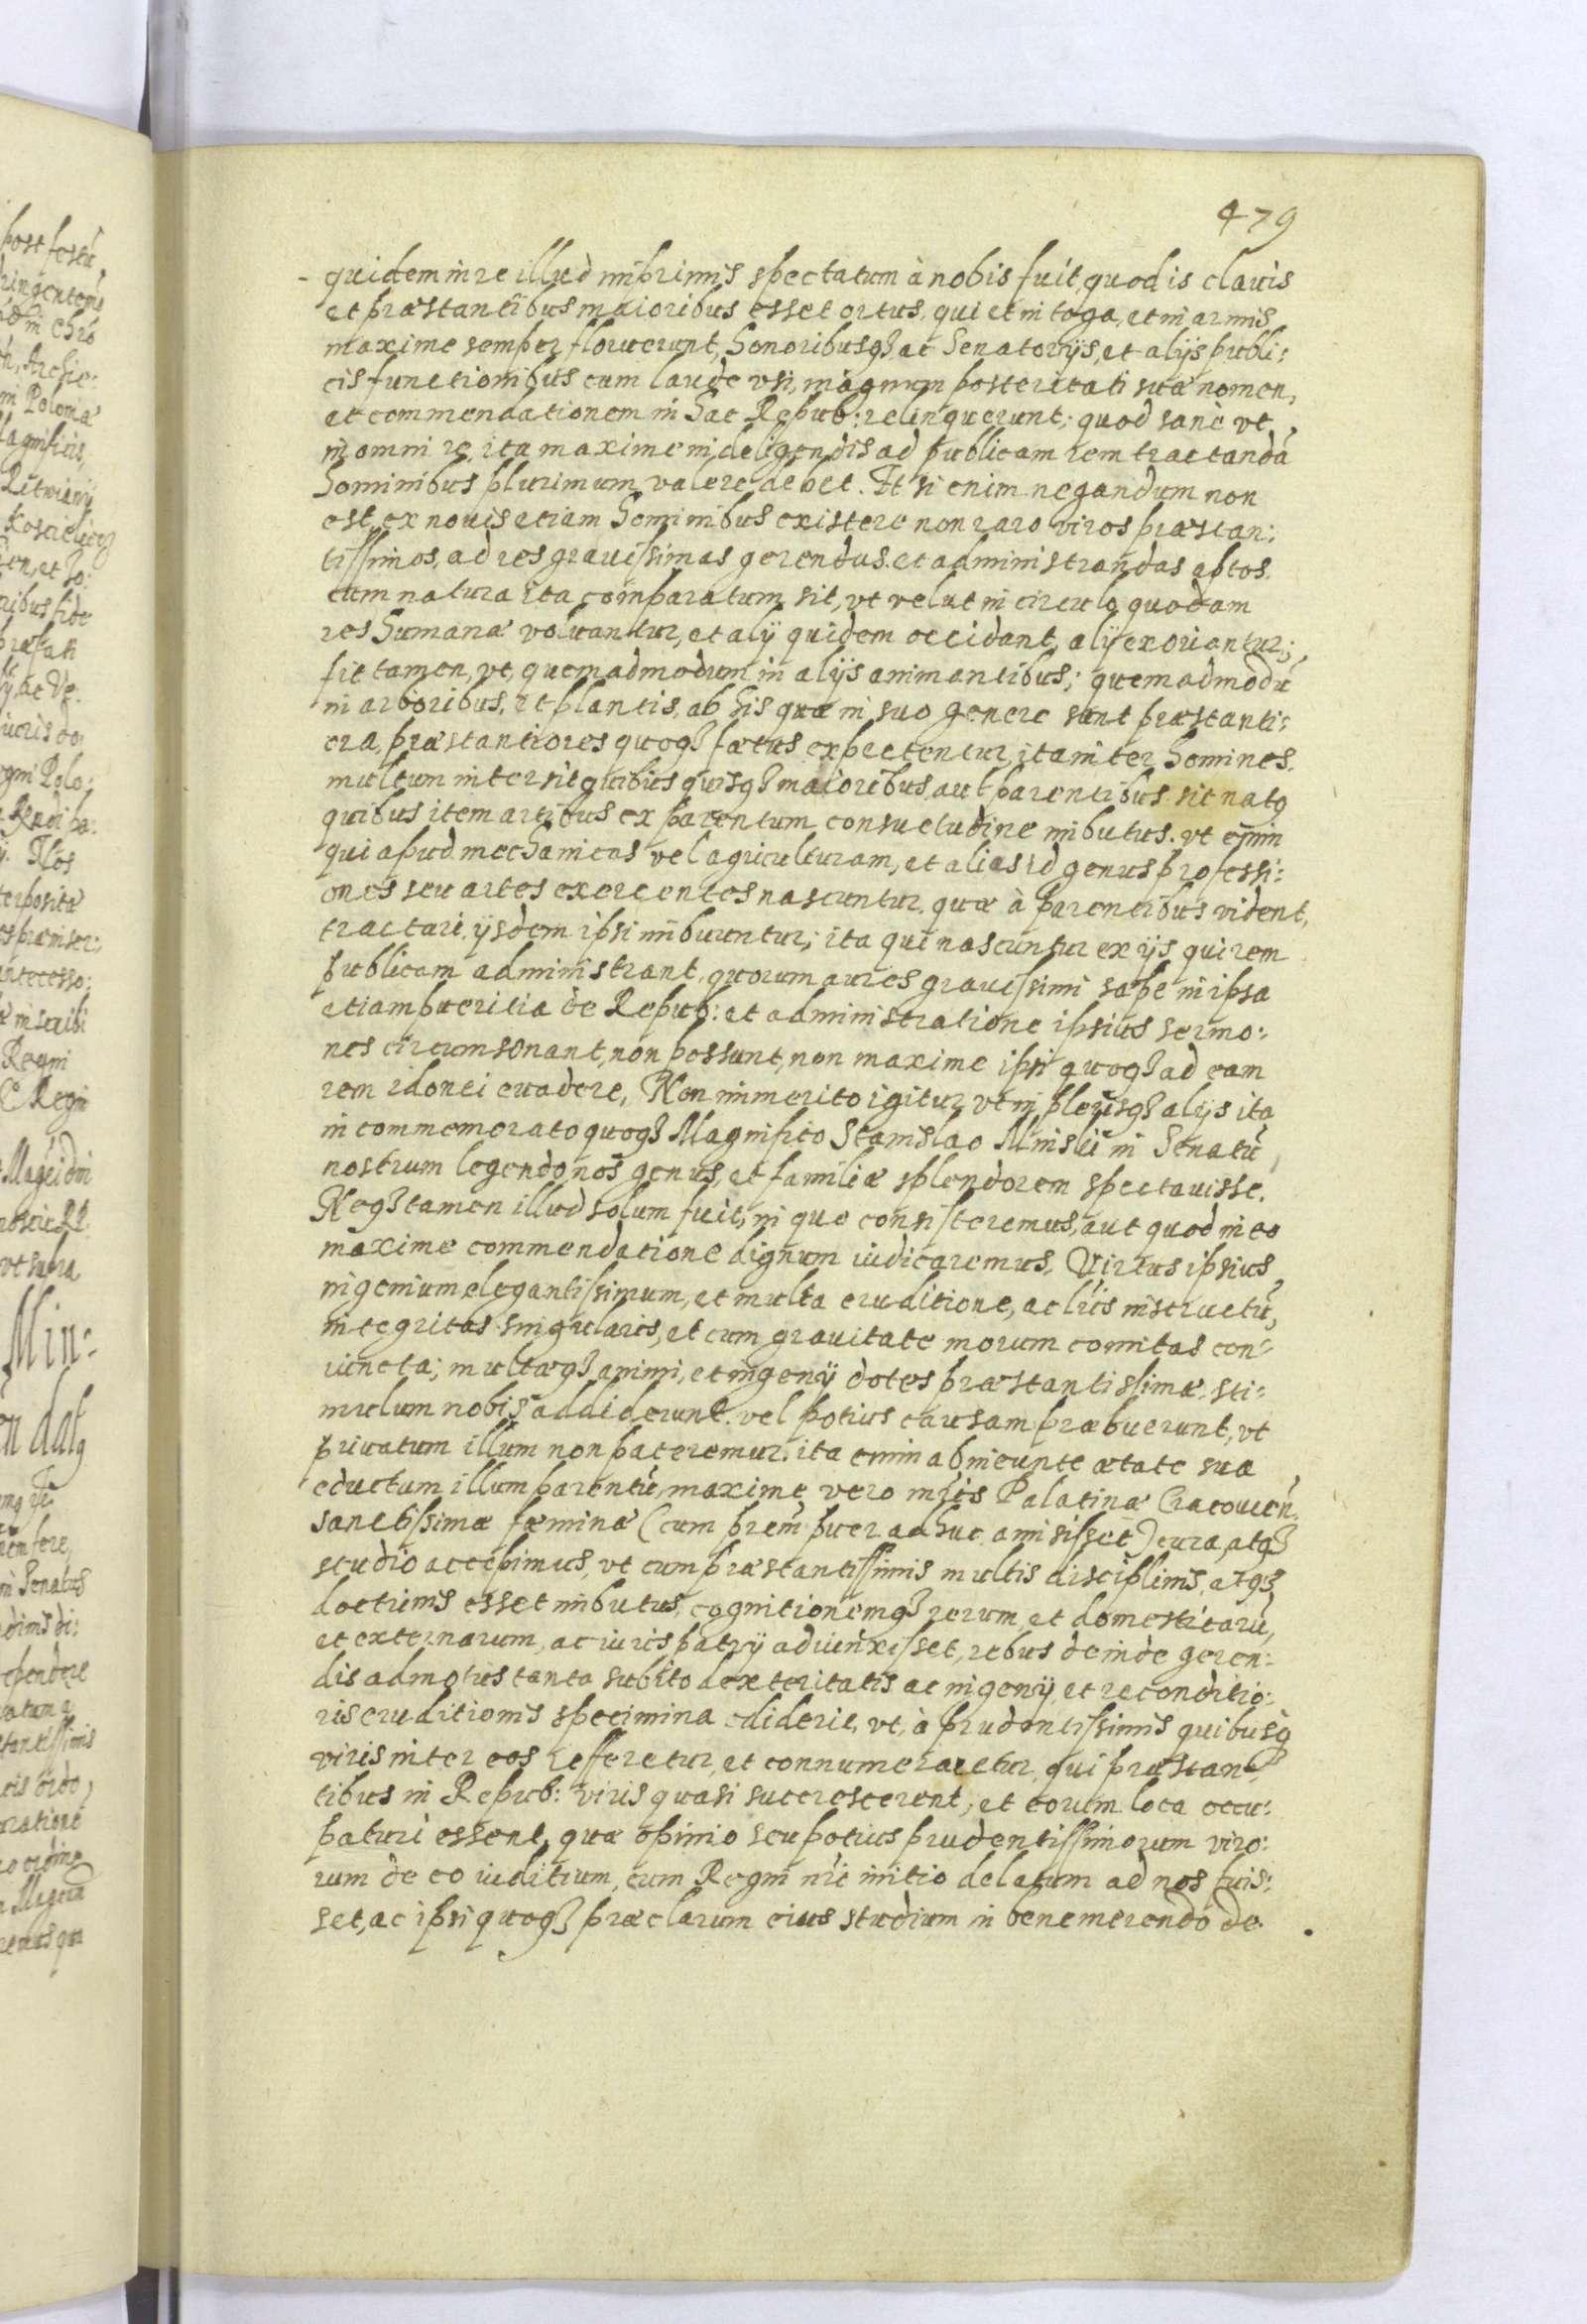 479
quidem in re illud inprimis spectatum à nobis fuit, quod is claris
et præstantibus maioribus esset ortus, qui et in toga, et in armis
maxime semper floruerunt, honoribusqȝ ac Senatorijs, et alijs publi:
cis functionibus cum laude vsi, magnum posteritati suæ nomen,
et commendationem in hac Repub: relinquerunt; quod sanè vt
in omni re, ita maxime in deligendis ad publicam rem tractandā
hominibus plurimum valere debet. Et si enim negandum non
est, ex nouis etiam hominibus existere non raro viros præstan:
tissimos, ad res grauissimas gerendas et administrandas aptos.
cum natura ita comparatum sit, vt velut in circulo quodam
res humanæ voluantur, et alij quidem occidant, alij exoriantur;
fit tamen, vt, quemadmodum in alijs animantibus; quemadmodū
in arboribus, et plantis, ab his quæ in suo genere sunt præstanti:
ora, præstantiores quoqȝ fætus expectentur, ita inter homines
multum intersit quibus quisqȝ maioribus aut parentibus sit natꝯ
quibus item artibus ex parentum consuetudine imbutus. vt enim
qui apud mechanicas vel agriculturam, et alias id genus professi:
ones seu artes exercentes nascuntur, quæ à parentibus vident
tractari, ijsdem ipsi imbuuntur; ita qui nascuntur ex ijs, qui rem
publicam administrant, quorum aures grauissimi sæpe in ipsa
etiam pueritia de Repub: et administratione ipsius sermo:
nes circumsonant, non possunt, non maxime ipsi quoqȝ ad eam
rem idonei euadere, Non immerito igitur vt in plerisqȝ alijs ita
in commemorato quoqȝ Magnifico Stanislao Minski in Senatū
nostrum legendo nos genus, et familiæ splendorem spectauisse.
Neqȝ tamen illud solum fuit, in quo consisteremus, aut quod in eo
maxime commendatione dignum iudicaremus, Virtus ipsius
ingenium elegantissimum, et multa eruditione, ac lris instructū,
integritas singularis, et cum grauitate morum comitas con:
iuncta; multæqȝ animi, et ingenij dotes præstantissimæ, sti:
mulum nobis addiderunt, vel potius causam præbuerunt, vt
priuatum illum non pateremur. ita enim ab ineunte ætate sua
eductum illum parentū, maxime vero mris Palatinæ Cracouien̄.
sanctissimæ fæminæ (cum prem̄ puer adhuc amisisset) cura, atqȝ
studio accepimus, vt cum præstantissimis multis disciplinis, atqȝ
doctrinis esset imbutus, cognitionemqȝ rerum, et domesticarū,
et externarum, ac iuris patrij adiunxisset, rebus deinde geren:
dis admotus tanta subito dexteritatis ac ingenij, et reconditio:
ris eruditionis specimina ediderit, vt, à prudentissimis quibusqȝ
viris inter eos refferetur, et connumeraretur, qui præstan:
tibus in Repub: viris quasi succrescerent, et eorum loca occu:
paturi essent, quæ opinio seu potius prudentissimorum viro:
rum de eo iuditium, cum Regni nri initio delatum ad nos fuis:
set, ac ipsi quoqȝ præclarum eius studium in benemerendo de